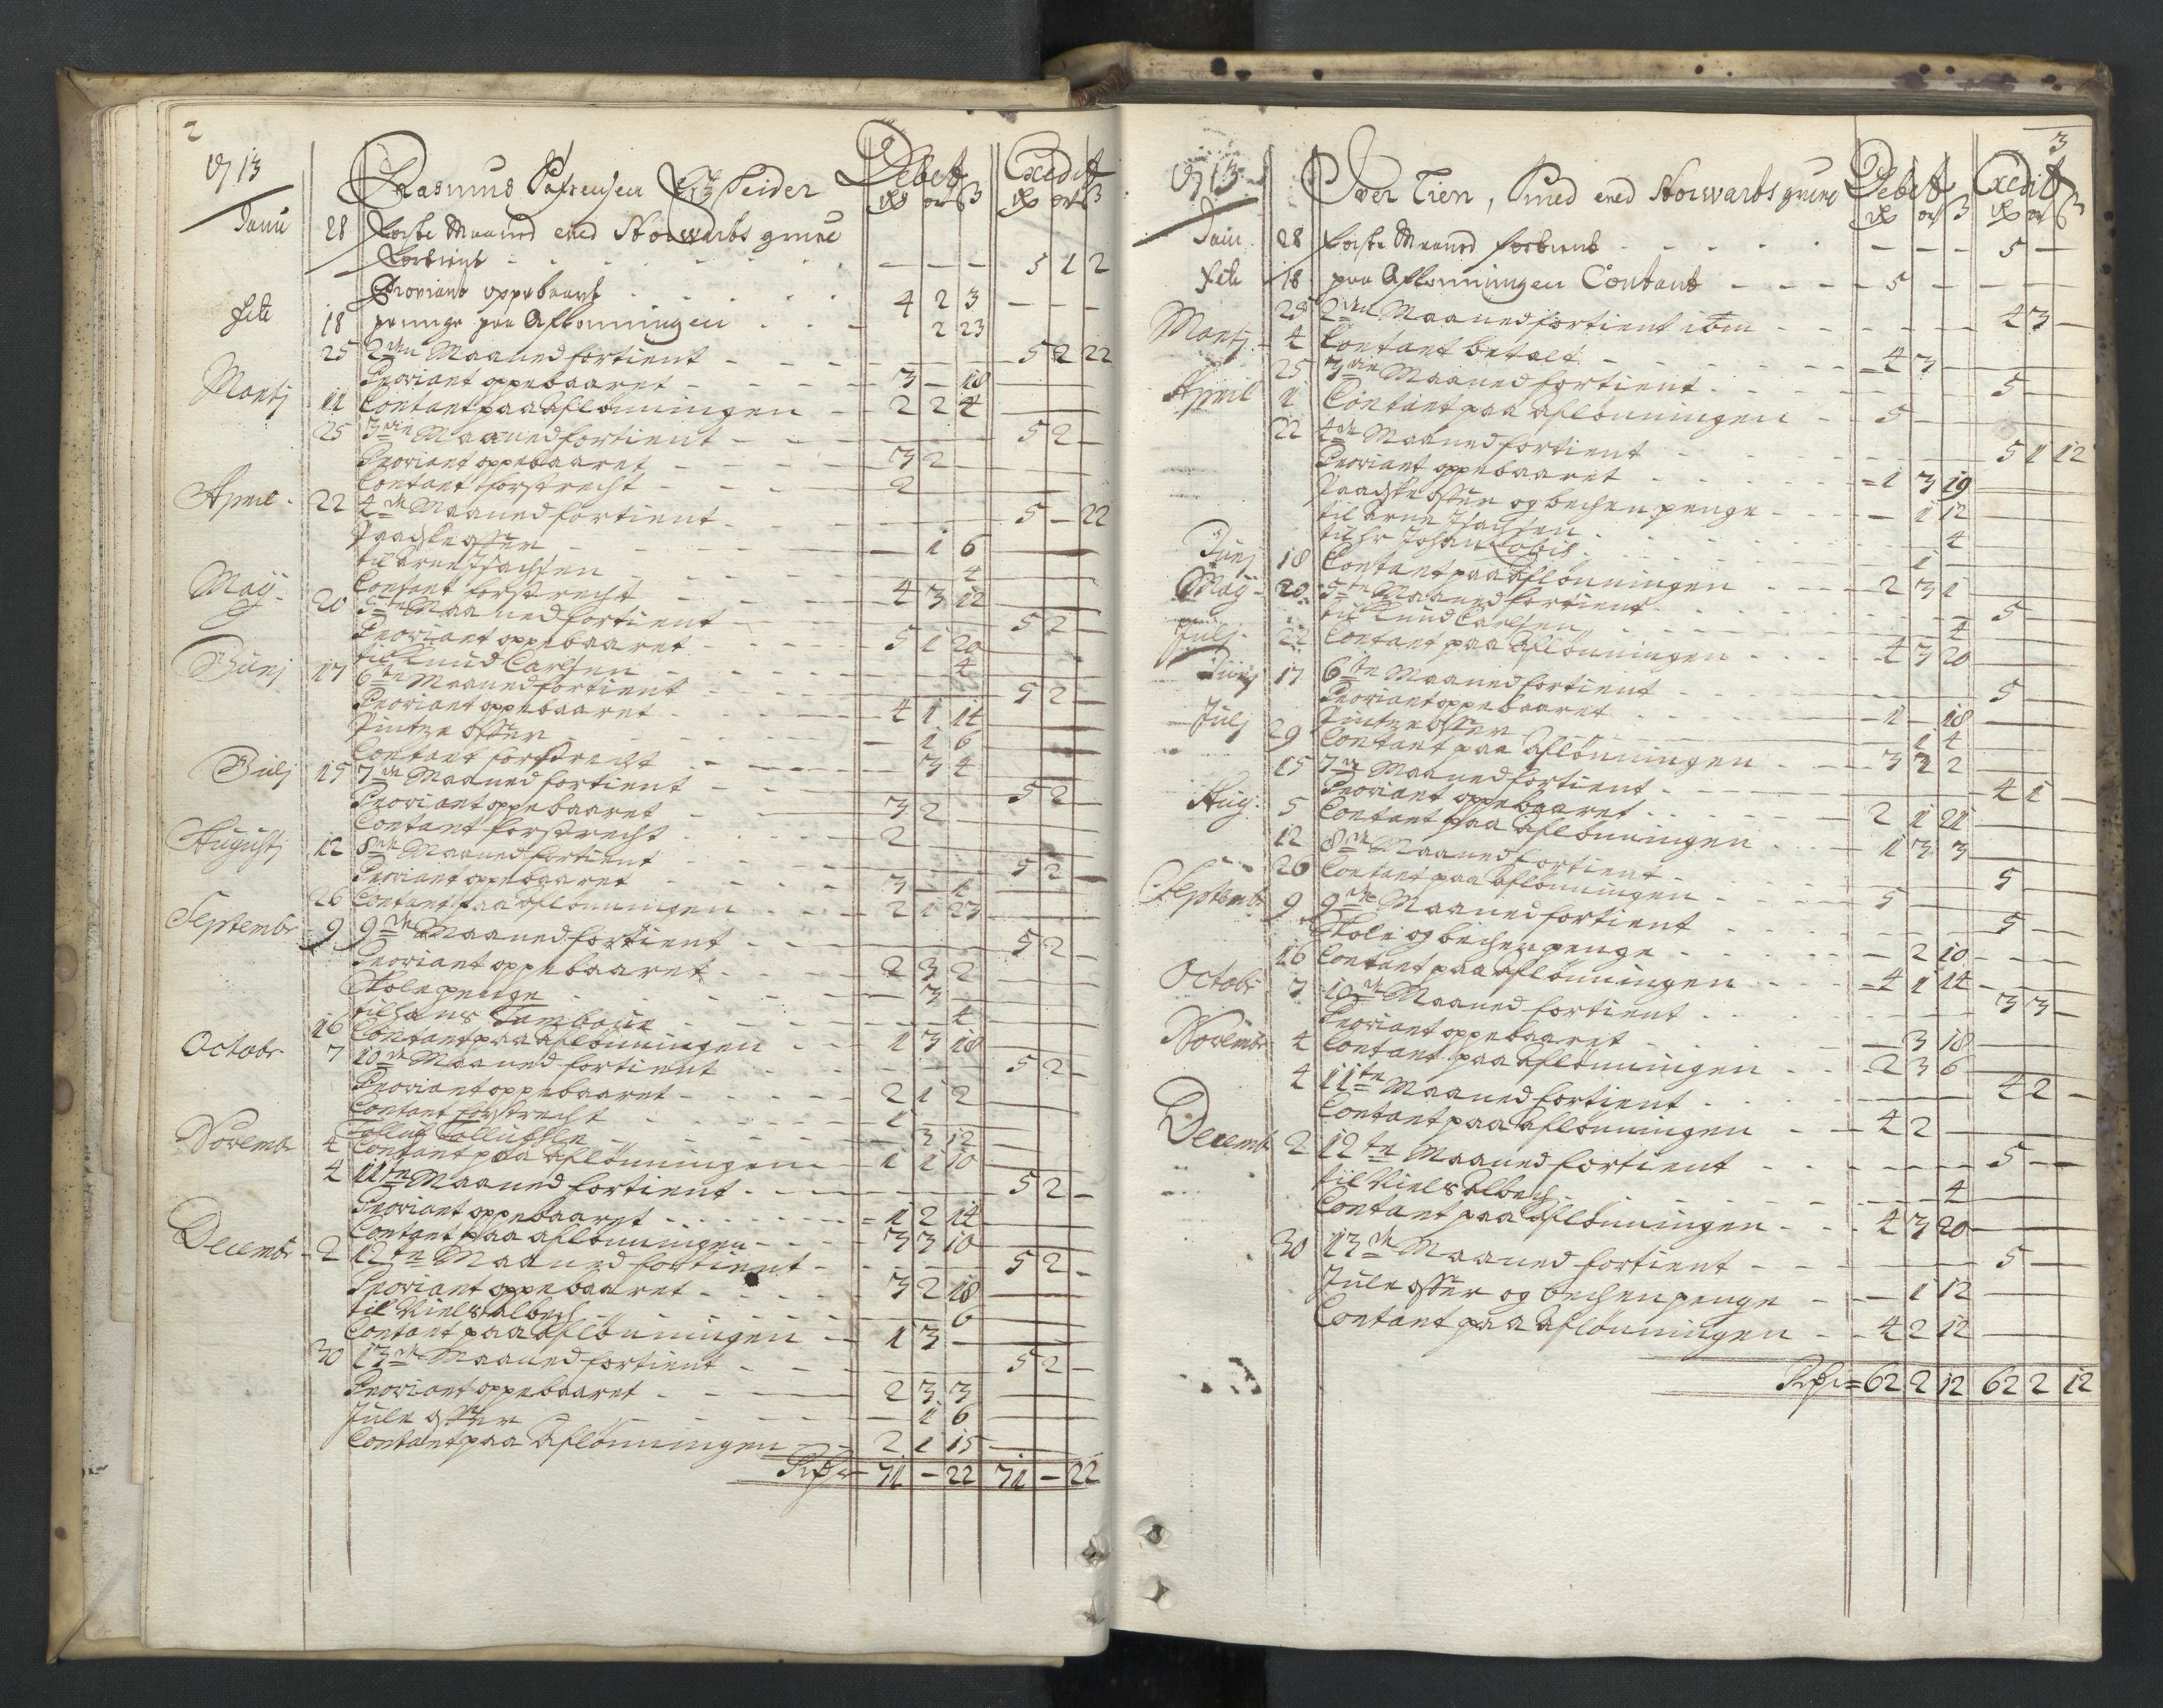 2
1713 Rasmus Pofvelsen Ertz Seider Debet Credit
Rd ort ß Rd ort ß
Janu 28 Første Maaned ved Storwarts grube
fortient - - - 5 1 2
Proviant oppebaaret 4 2 3 - - -
Feb 18 penge paa Aflønningen 2 23
25 2den Maaned fortient - - - 5 2 22
Proviant oppebaaret 3 - 18
Martj 11 Contant paa aflønningen 2 2 4
25 3die Maaned fortient 5 2 -
Proviant oppebaaret 3 2
Contant forstrecht 2
April 22 4de Maaned fortient 5 - 22
Paaske offer - 1 6
til Arne Isachsen 4
Contant forstrecht 4 3 12
Maij 20 5te Maaned fortient 5 2 -
Proviant oppebaaret 5 1 20
til Knud Carlsen 4
Junj 17 6te Maaned fortient 5 2 -
Proviant oppebaaret 4 1 14
Pintze offer - 1 6
Contant forstrecht - 3 4
Julj 15 7de Maaned fortient 5 2 -
Proviant oppebaaret 3 2
Contant forstrecht 2
Augustj 12 8de Maaned fortient 5 2 -
Proviant oppebaaret 3 - 1
26 Contant paa aflønningen 2 1 23
Septembr 9 9de Maaned fortient 5 2 -
Proviant oppebaaret 2 3 2
Skole penge - 3 -
til Hans Tambour 4
16 Contant paa aflønningen 1 3 18
Octobr 7 10de Maaned fortient 5 2 -
Proviant oppebaaret 2 1 2
Contant forstrecht 1
3 12
Novembr 4 Contant paa aflønningen 1 1 10
4 11te Maaned fortient 5 2 -
Proviant oppebaaret 1 2 14
Contant paa aflønningen 3 3 10
Decembr 2 12te Maaned fortient 5 2 -
Proviant oppebaaret 3 2 18
til Niels Albech 6
Contant paa aflønningen 1 3 -
30 13de Maaned fortient 5 2 -
Proviant oppebaaret 2 3 3
Jule offer - 1 6
Contant paa Aflønningen 2 1 15
71 - 22 71 - 22
3
1713 Iver Tien, Smed ved Storwarts grube Debet Credit
Rd ort ß Rd ort ß
Janu 28 Første Maaned fortient - - - 5 -
Feb 18 paa Aflønningen Contant 5 - -
25 2den Maaned fortient 4 3 -
Martj 4 Contant betalt 4 3
25 3die Maaned fortient 5 -
April 1 Contant paa aflønningen 5 -
22 4de Maaned fortient 5 1 12
Proviant oppebaaret 1 3 19
Paaske offer og bechen penge - 1 12
til Arne Isachsen 4
til Hr Johan 1 -
Junj 18 Contant paa aflønningen 2 3 1
Maij 20 5te Maaned fortient 5 -
til Knud Carlsen 4
Julj 22 Contant paa aflønningen 4 3 20
Junj 17 6te Maaned fortient 5 -
Proviant oppebaaret 1 - 18
Pintze offer 1 4
Julj 29 Contant paa aflønningen 3 2 2
15 7de Maaned fortient 4 1 -
Proviant oppebaaret 2 1 21
Aug: 5 Contant paa aflønningen 1 3 3
12 8de Maaned fortient 5 -
26 Contant paa aflønningen 5
Septembr 9 9de Maaned fortient 5 -
Skole og bechen penge - 2 10
16 Contant paa aflønningen 4 1 14
Octobr 7 10de Maaned fortient 3 3 -
Proviant oppebaaret - 3 18
Novembr 4 Contant paa aflønningen 2 3 6
4 11te Maaned fortient 4 2 -
Contant paa aflønningen 4 2
Decembr 2 12te Maaned fortient 5 -
til Niels Albech 4
Contant paa aflønningen 4 3 20
30 13de Maaned fortient 5 -
Jule offer og bechen penge - 1 12
Contant paa aflønningen 4 2 12
62 2 12 62 2 12